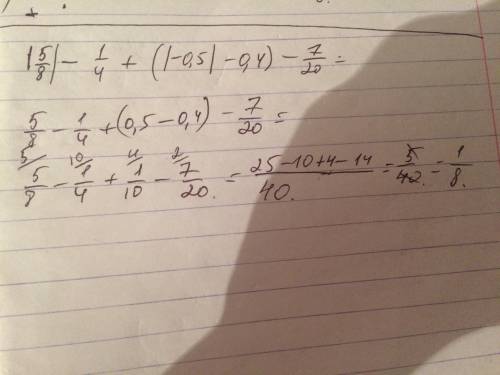 |5/8| - 1/4 + (|-0,5| - 0,4) - 7/20 =
5/8 - 1/4 + (0,5 - 0,4) - 7/20 =
5/ 10/ 4/ 2/
5/8 - 1/4 + 1/10 - 7/20. = 25-10+4-14/40. = 5/40. = 1/8.